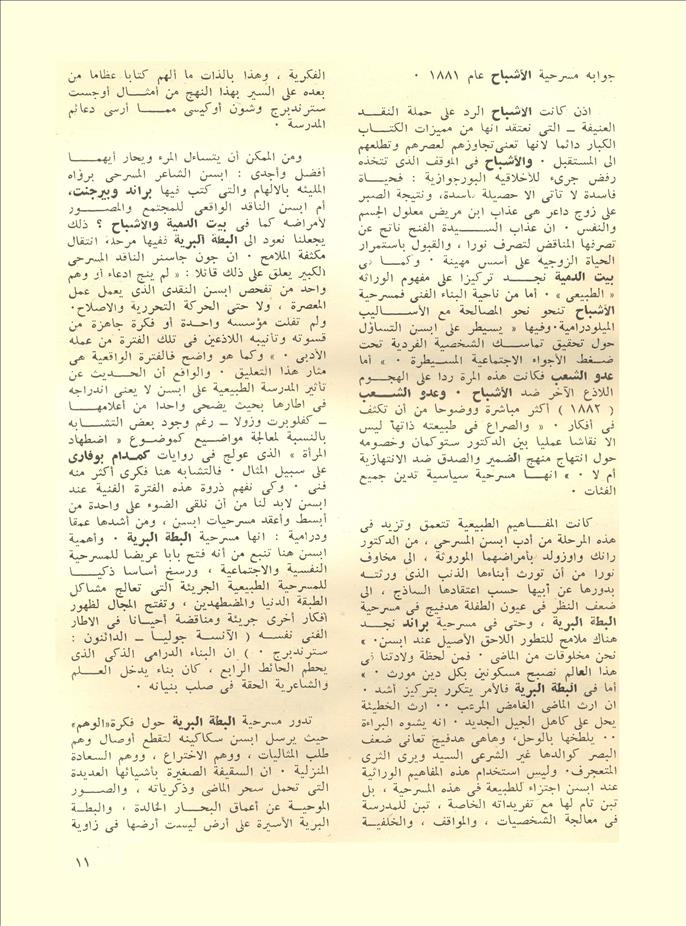 جوابه مسرحية الأشباح عام ١٨٨١ ٠
اذن كانت الاشباح الرد على حملة النقد
العنيفة ــ التى نعتقد انها من مميزات الكتاب
الكبار دائما لانها تعنى تجاوزهم لعصرهم وتطلعهم
الى المستقبل ٠ والأشباح فى الموقف الذى تتخذه
رفض جرىء للأخلاقية البورجوازية : فحياة
فاسدة لا تأتى الا حصيلة فاسدة، ونتيجة الصبر
على زوج داعر هى عذاب ابن مريض معلول الجسم
والنفس ٠ ان عذاب السيدة الفنج ناتج عن
تصرفها المناقض لتصرف نورا ، والقبول باستمرار
الحياة الزوجية على أسس مهينة ٠ وكما فى
بيت الدمية نجد تركيزا على مفهوم الوراثة
« الطبيعى » ٠ أما من ناحية البناء الفنى فمسرحية
الأشباح تنحو نحو المصالحة مع الأساليب
الميلودرامية٠ وفيها « يسيطر على ابسن التساؤل
حول تحقيق تماسك الشخصية الفردية تحت
ضغط الأجواء الاجتماعية المسيطرة ٠ » أما
عدو الشعب فكانت هذه المرة ردا على الهجوم
اللاذع الآخر ضد الأشباح ٠ وعدو الشعب
( ١٨٨٢ ) أكثر مباشرة ووضوحا من أن تكثف
فى أفكار ٠ « والصراع فى طبيعته ذاتها ليس
الا نقاشا عمليا بين الدكتور ستوكمان وخصومه
حول انتهاج منهج الضمير والصدق ضد الانتهازية
أم لا ٠ » انها مسرحية سياسية تدين جميع
الفئات ٠
كانت المفاهيم الطبيعية تتعمق وتزيد فى
هذه المرحلة من أدب ابسن المسرحى ، من الدكتور
رانك واوزولد بأمراضهما الموروثة ، الى مخاوف
نورا من أن تورث أبناءها الذنب الذى ورثته
بدورها عن أبيها حسب اعتقادها الساذج ، الى
ضعف النظر فى عيون الطفلة هدفيج فى مسرحية
البطة البرية ، وحتى فى مسرحية براند نجد
هناك ملامح للتطور اللاحق الأصيل عند ابسن٠ »
نحن مخلوقات من الماضى ٠ فمن لحظة ولادتنا فى
هذا العالم نصبح مسكونين بكل دين مورث ٠ »
أما فى البطة البرية فالأمر يتكرر بتركيز أشد ٠
ان ارث الماضى الغامض المرعب ٠٠ ارث الخطيئة
يحل على كاهل الجيل الجديد ٠ انه يشوه البراءة
٠٠ يلطخها بالوحل، وهاهى هدفيج تعانى ضعف
البصر كوالدها غير الشرعى السيد ويرى الثرى
المتعجرف٠ وليس استخدام هذه المفاهيم الوراثية
عند ابسن اجتزاء للطبيعة فى هذه المسرحية ، بل
تبن تام لها مع تفريداته الخاصة ، تبن للمدرسة
فى معالجة الشخصيات ، والمواقف ، والخلفية
الفكرية ، وهذا بالذات ما ألهم كتابا عظاما من
بعده على السير بهذا النهج من أمثال أوجست
سترندبرج وشون أوكيسى مما أرسى دعائم
المدرسة ٠
ومن الممكن أن يتساءل المرء ويحار أيهما
أفضل وأجدى : ابسن الشاعر المسرحى برؤاه
المليئه بالالهام والتى كتب فيها براند وبيرجنت،
أم ابسن الناقد الواقعى للمجتمع والمصور
لأمراضه كما فى بيت الدمية والأشباح ؟ ذلك
يجعلنا نعود الى البطة البرية ففيها مرحلة انتقال
مكثفة الملامح ٠ ان جون جاسنر الناقد المسرحى
الكبير يعلق على ذلك قائلا : « لم ينج ادعاء أو وهم
واحد من تفحص ابسن النقدى الذى يعمل عمل
المعصرة ، ولا حتى الحركة التحررية والاصلاح٠
ولم تفلت مؤسسه واحدة أو فكرة جاهزة من
قسوته وتأنيبه اللاذعين فى تلك الفترة من عمله
الأدبى ٠ » وكما هو واضح فالفترة الواقعية هى
مثار هذا التعليق ٠ والواقع أن الحديث عن
تأثير المدرسة الطبيعية على ابسن لا يعنى اندراجه
فى اطارها بحيث يضحى واحدا من أعلامها
ــ كفلوبرت وزولا ــ رغم وجود بعض التشابه
بالنسبة لمعالجة مواضيع كموضوع « اضطهاد
المرأة » الذى عولج فى روايات كمدام بوفارى
على سبيل المثال ٠ فالتشابه هنا فكرى أكثر منه
فنى ٠ وكى نفهم ذروة هذه الفترة الفنية عند
ابسن لابد لنا من أن نلقى الضوء على واحدة من
أبسط وأعقد مسرحيات ابسن ، ومن أشدها عمقا
ودرامية : انها مسرحية البطة البرية ٠ وأهمية
ابسن هنا تنبع من أنه فتح بابا عريضا للمسرحية
النفسية والاجتماعية ، ورسخ أساسا ذكيا
للمسرحية الطبيعية الجريئة التى تعالج مشاكل
الطبقة الدنيا والمضطهدين ، وتفتح المجال لظهور
أفكار أخرى جريئة ومناقضة أحيانا فى الاطار
الفنى نفسه ( الآنسة جوليا ــ الدائنون :
سترندبرج ٠ ) ان البناء الدرامى الذكى الذى
يحطم الحائط الرابع ، كان بناء يدخل العلم
والشاعرية الحقة فى صلب بنيانه ٠
تدور مسرحية البطة البرية حول فكرة«الوهم»
حيث يرسل ابسن سكاكينه لتقطع أوصال وهم
طلب المثاليات ، ووهم الاختراع ، ووهم السعادة
المنزلية ٠ ان السقيفة الصغيرة بأشيائها العديدة
التى تحمل سحر الماضى وذكرياته ، والصور
الموحية عن أعماق البحار الخالدة ، والبطة
البرية الأسيرة على أرض ليست أرضها فى زاوية
١١